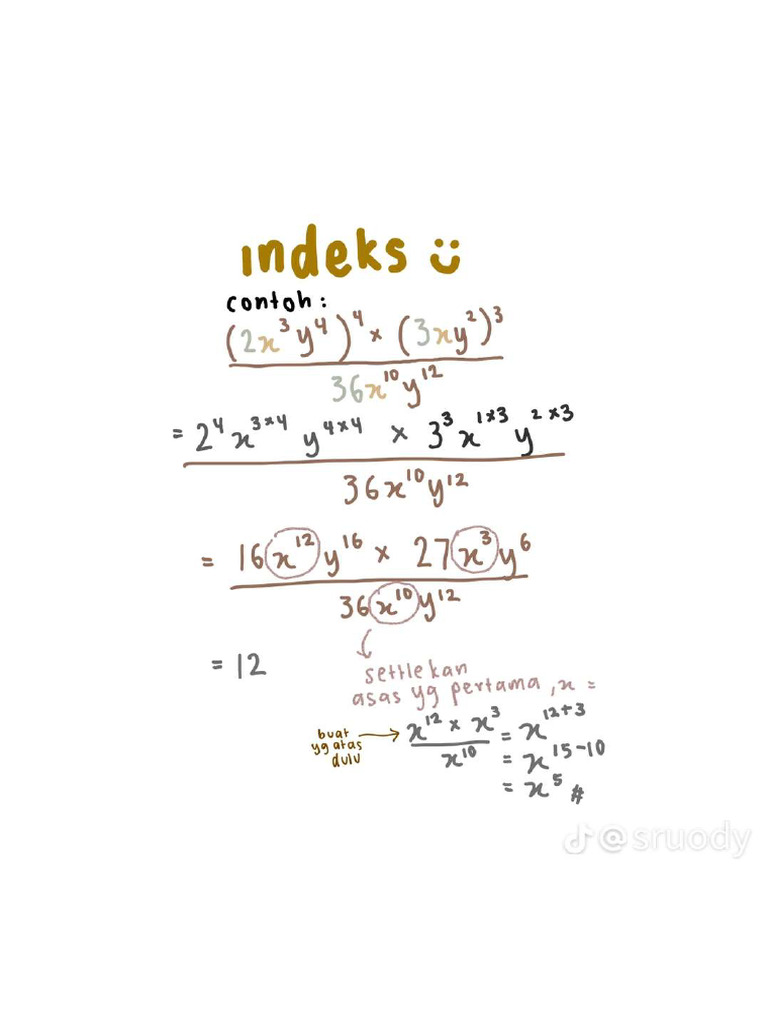 indeks
contoh:
(2x³y⁴)⁴ × (3xy²)³
36x¹⁰y¹²
= 2⁴x³ˣ⁴ y⁴ˣ⁴ × 3³x¹ˣ³y²ˣ³
36x¹⁰y¹²
= 16x¹²y¹⁶ × 27x³y⁶
36x¹⁰y¹²
= 12
settlekan
asas yg pertama, x =
buat
yg atas
dulu
x¹² × x³ = x¹²⁺³
x¹⁰ = x¹⁵⁻¹⁰
= x⁵ #
@sruody